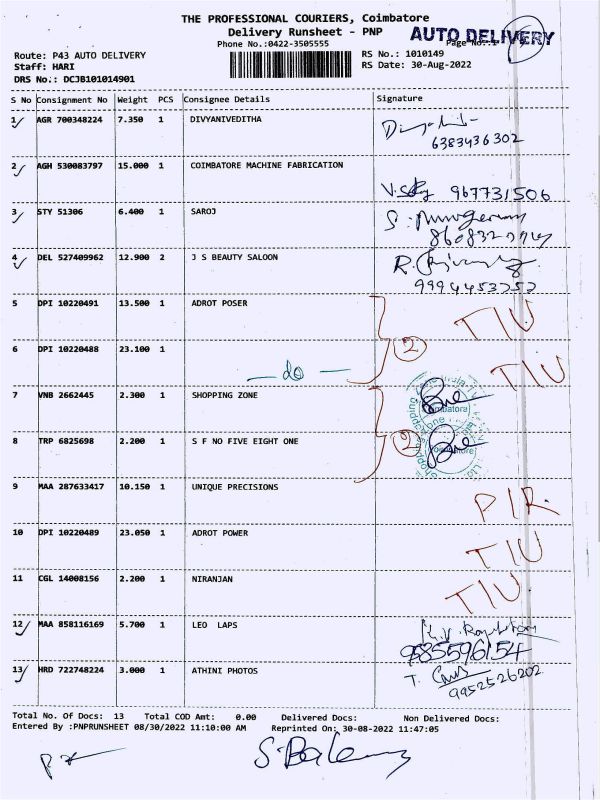 THE PROFESSIONAL COURIERS, Coimbatore
Delivery Runsheet - PNP
AUTO DELIVERY
Phone No.:0422-3505555
Page No.:
Route: P43 AUTO DELIVERY
RS No.: 1010149
Staff: HARI
RS Date: 30-Aug-2022
DRS No.: DCJB101014901
S No Consignment No Weight PCS Consignee Details Signature
1 AGR 700348224 7.350 1 DIVYANIVEDITHA
6383436302
2 AGH 530083797 15.000 1 COIMBATORE MACHINE FABRICATION
967731506
3 STY 51306 6.400 1 SAROJ
4 DEL 527409962 12.900 2 J S BEAUTY SALOON
9994453753
5 DPI 10220491 13.500 1 ADROT POSER
2 TIU
6 DPI 10220488 23.100 1
— do — TIU
7 VNB 2662445 2.300 1 SHOPPING ZONE
8 TRP 6825698 2.200 1 S F NO FIVE EIGHT ONE
2
9 MAA 287633417 10.150 1 UNIQUE PRECISIONS
PIR.
10 DPI 10220489 23.050 1 ADROT POWER
TIU
11 CGL 14008156 2.200 1 NIRANJAN
TIU
12 MAA 858116169 5.700 1 LEO LAPS
9585596154
13 HRD 722748224 3.000 1 ATHINI PHOTOS
9952526202
Total No. Of Docs: 13 Total COD Amt: 0.00 Delivered Docs: Non Delivered Docs:
Entered By :PNPRUNSHEET 08/30/2022 11:10:00 AM Reprinted On: 30-08-2022 11:47:05